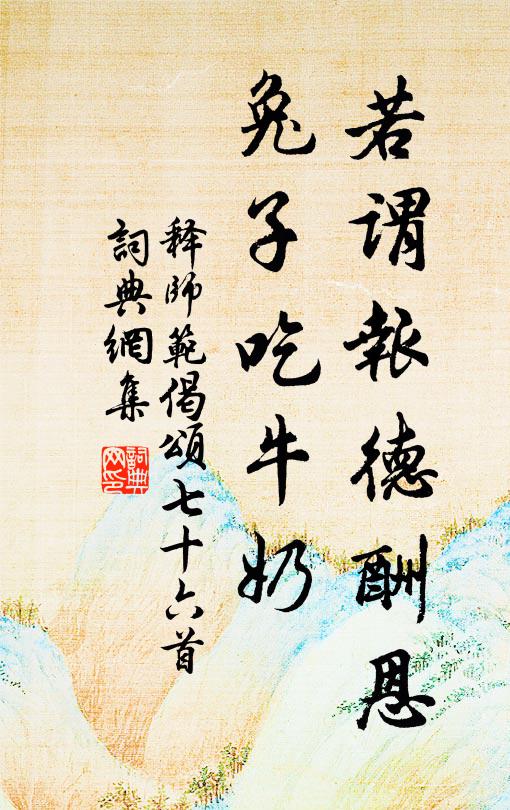 若谓報德酬恩
兔子吃牛奶
释師範偈頌七十六首
詞典網集
詞典网印